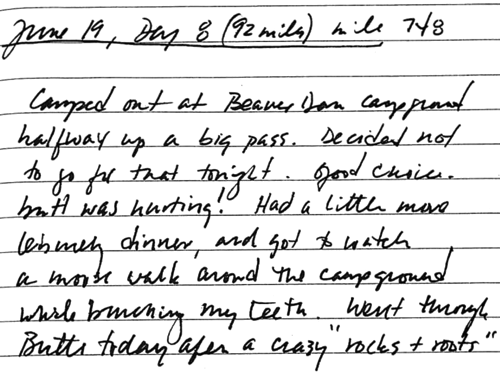 June 19, Day 8 (92 miles) mile 748
Camped out at Beaver Dam campground
halfway up a big pass. Decided not
to go for that tonight. Good choice.
butt was hurting! Had a little more
leisurely dinner, and got to watch
a moose walk around the campground
while brushing my teeth. Went through
Butte today after a crazy "rocks + roots"